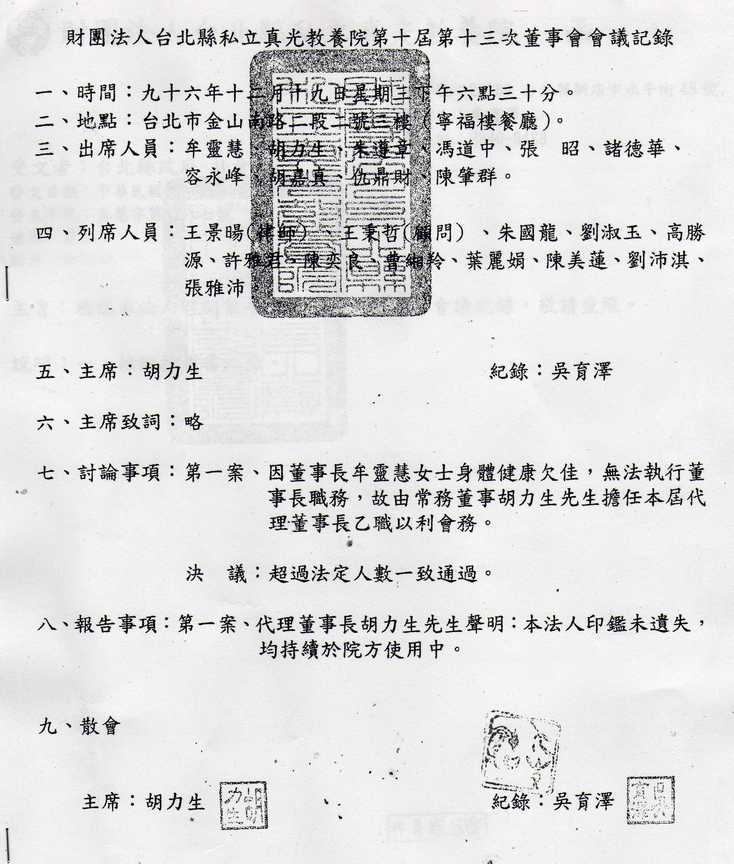 財團法人台北縣私立真光教養院第十屆第十三次董事會會議記錄
一、時間：九十六年十二月十九日星期三下午六點三十分。
二、地點：台北市金山南路二段二號三樓（寧福樓餐廳）。
三、出席人員：牟靈慧、胡力生、朱遵章、馮道中、張　昭、諸德華、
容永峰、胡嘉真、仇鼎財、陳肇群。
四、列席人員：王景暘(律師)、王秉哲(顧問)、朱國龍、劉淑玉、高勝
源、許雅君、陳奕良、曹細羚、葉麗娟、陳美蓮、劉沛淇、
張雅沛。
五、主席：胡力生　紀錄：吳育澤
六、主席致詞：略
七、討論事項：第一案、因董事長牟靈慧女士身體健康欠佳，無法執行董
事長職務，故由常務董事胡力生先生擔任本屆代
理董事長乙職以利會務。
決　議：超過法定人數一致通過。
八、報告事項：第一案、代理董事長胡力生先生聲明：本法人印鑑未遺失，
均持續於院方使用中。
九、散會
主席：胡力生　紀錄：吳育澤